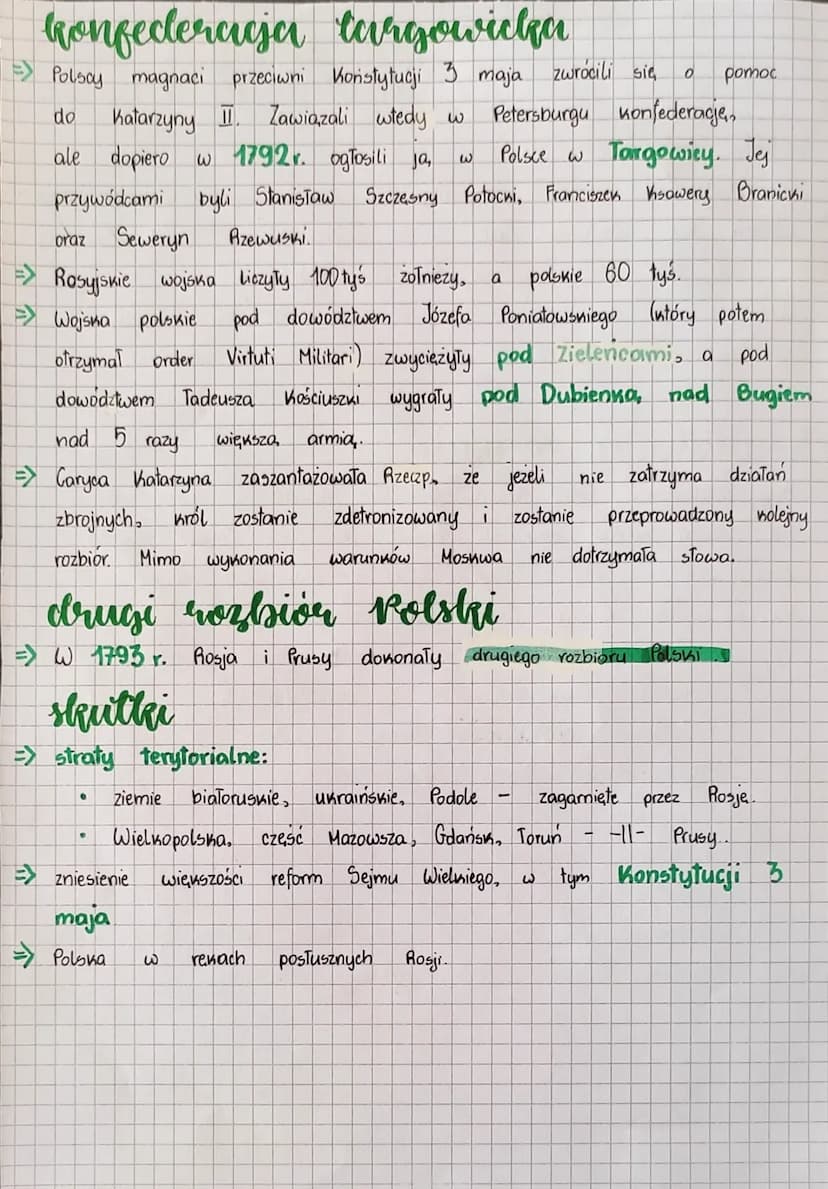 konfederacja targowicka
=> Polscy magnaci przeciwni Konstytucji 3 maja zwrócili się o pomoc
do Katarzyny II. Zawiązali wtedy w Petersburgu konfederację,
ale dopiero w 1792r. ogłosili ją w Polsce w Targowicy. Jej
przywódcami byli Stanisław Szczęsny Potocki, Franciszek Ksawery Branicki
oraz Seweryn Rzewuski.
=> Rosyjskie wojska liczyły 100tyś żołnieży, a polskie 60 tyś.
=> Wojska polskie pod dowództwem Józefa Poniatowskiego (który potem
otrzymał order Virtuti Militari) zwyciężyły pod Zieleńcami, a pod
dowództwem Tadeusza Kościuszki wygrały pod Dubienką nad Bugiem
nad 5 razy większą armią.
=> Caryca Katarzyna zaszantażowała Rzeczp. że jeżeli nie zatrzyma działań
zbrojnych, król zostanie zdetronizowany i zostanie przeprowadzony kolejny
rozbiór. Mimo wykonania warunków Moskwa nie dotrzymała słowa.
drugi rozbiór Polski
=> W 1793 r. Rosja i Prusy dokonały drugiego rozbioru Polski.
skutki
=> straty terytorialne:
• ziemie białoruskie, ukraińskie, Podole - zagarnięte przez Rosję.
• Wielkopolska, część Mazowsza, Gdańsk, Toruń - -||- Prusy.
=> zniesienie większości reform Sejmu Wielkiego, w tym Konstytucji 3
maja
=> Polska w rękach posłusznych Rosji.